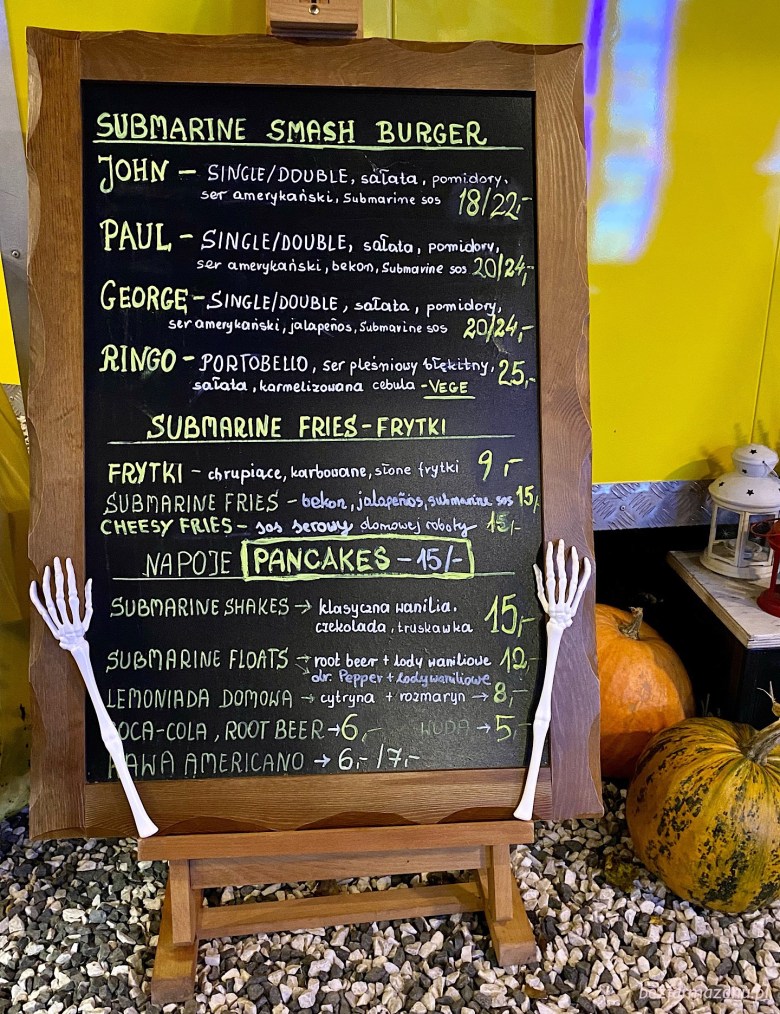 SUBMARINE SMASH BURGER
JOHN – SINGLE/DOUBLE, sałata, pomidory,
ser amerykański, Submarine sos 18/22,-
PAUL – SINGLE/DOUBLE, sałata, pomidory,
ser amerykański, bekon, Submarine sos 20/24,-
GEORGE – SINGLE/DOUBLE, sałata, pomidory,
ser amerykański, jalapeños, Submarine sos 20/24,-
RINGO – PORTOBELLO, ser pleśniowy błękitny, 25,-
sałata, karmelizowana cebula – VEGE
SUBMARINE FRIES – FRYTKI
FRYTKI – chrupiące, karbowane, słone frytki 9,-
SUBMARINE FRIES – bekon, jalapeños, submarine sos 15,-
CHEESY FRIES – sos serowy domowej roboty 15,-
NAPOJE PANCAKES – 15/-
SUBMARINE SHAKES → klasyczna wanilia, 15,-
czekolada, truskawka
SUBMARINE FLOATS → root beer + lody waniliowe 12,-
→ dr. Pepper + lody waniliowe
LEMONIADA DOMOWA → cytryna + rozmaryn → 8,-
COCA-COLA, ROOT BEER → 6,- WODA → 5,-
KAWA AMERICANO → 6,- /7,-